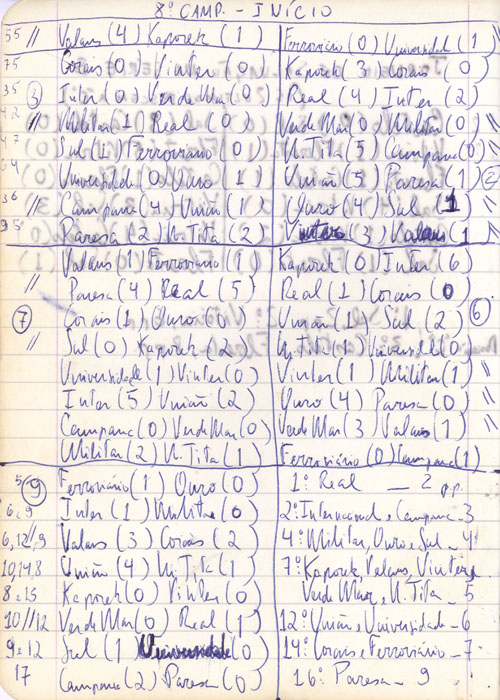 8º CAMP. - INÍCIO
55 // Valaus (4) Kaporek (1) Ferroviário (0) Universidade (1) //
75 Corais (0) Vinter (0) Kaporek (3) Corais (0)
35 (3) Inter (0) Verde Mar (0) Real (4) Inter (2)
42 // Militar (1) Real (0) Verde Mar (0) Militar (0) //
47 Sul (1) Ferroviário (0) N. Tita (5) Campana (0) //
04 Universidade (0) Ouro (1) União (5) Paresa (1) (2)
36 // Campana (4) União (1) Ouro (4) Sul (1) //
95 Paresa (2) N. Tita (2) Vinter (3) Valaus (1) //
Valaus (1) Ferroviário (1) Kaporek (0) Inter (6)
// Paresa (4) Real (5) Real (1) Corais (0)
(7) Corais (1) Ouro (0) União (1) Sul (2) (6)
// Sul (0) Kaporek (2) N. Tita (1) Universidade (0)
Universidade (1) Vinter (0) Vinter (1) Militar (1) //
Inter (5) União (2) Ouro (4) Paresa (0) //
Campana (0) Verde Mar (0) Verde Mar (3) Valaus (1) //
Militar (2) N. Tita (1) Ferroviário (0) Campana (1)
5 (9) Ferroviário (1) Ouro (0) 1º Real _ 2 p.p.
6, 9 Inter (1) Militar (0) 2º Internacional e Campana _ 3
6, 12 // 9 Valaus (3) Corais (2) 4º Militar, Ouro e Sul _ 4
10, 14, 8 União (4) N. Tita (1) 7º Kaporek, Valaus, Vinter,
8 e 15 Kaporek (0) Vinter (0) Verde Mar e N. Tita _ 5
10 // 12 Verde Mar (0) Real (1) 12º União e Universidade _ 6
9 e 12 Sul (1) Universidade (0) 14º Corais e Ferroviário _ 7
17 Campana (2) Paresa (0) 16º Paresa _ 9